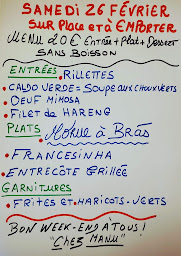 SAMEDI 26 FÉVRIER
SUR PLACE et à EMPORTER
MENU 20€ ENTRÉE + PLAT + DESSERT
SANS BOISSON
ENTRÉES • RILLETTES
• CALDO VERDE = SOUPE AUX CHOUX VERTS
• OEUF MIMOSA
• FILET de HARENG
PLATS • Morue à Brás
• FRANCESINHA
• ENTRECÔTE GRILLÉE
GARNITURES
• FRITES et HARICOTS-VERTS
BON WEEK-END À TOUS !
"CHEZ MANU"